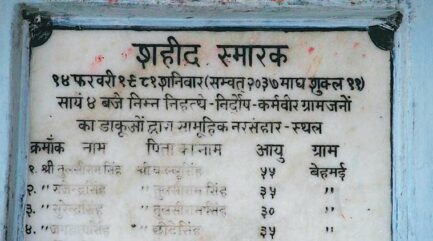 शहीद स्मारक
१४ फरवरी १९८१ शनिवार (सम्वत् २०३७ माघ शुक्ल ११)
सायं ४ बजे निम्न निहत्थे - निर्दोष - कर्मवीर ग्रामजनों
का डाकुओं द्वारा सामूहिक नरसंहार - स्थल
क्रमाँक नाम पिता का नाम आयु ग्राम
१. श्री तुलसीराम सिंह श्री सिंह ५५ बेहमई
२. " " तुलसीराम सिंह ३५ "
३. " " तुलसीराम सिंह ३० "
४. " " सिंह ३५ "